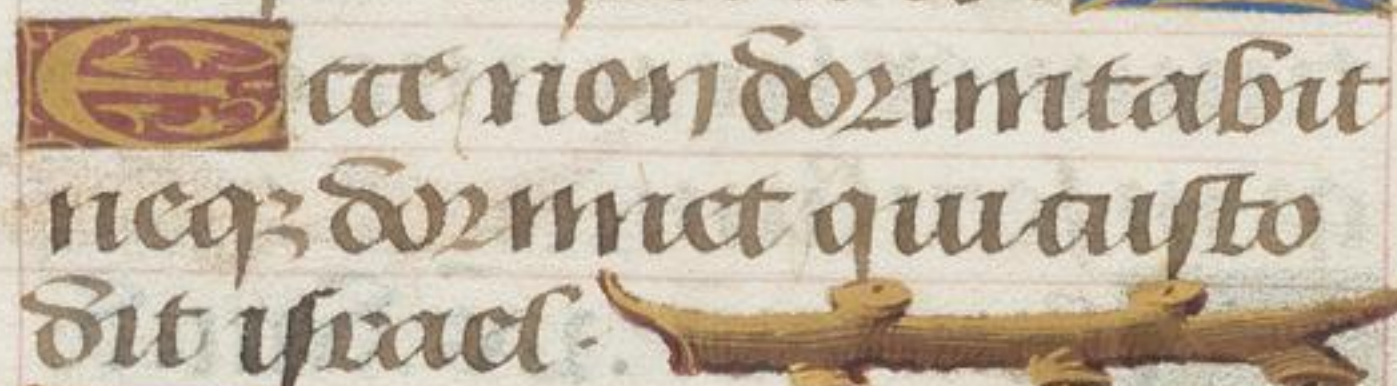 Ecce non dormitabit
neqꝫ dormiet qui custo
dit israel.